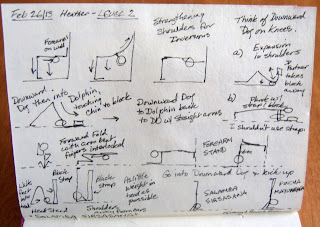 Feb 26/13 Heather - LEVEL 2
Forearms
on wall
Strengthening
Shoulders for
Inversions
Think of Downward
Dog on Knees.
a) Expansion
in shoulders
Partner
takes block
away
Downward
Dog then into
Dolphin,
reaching
Chin to block
Downward Dog
to Dolphin back
to DD w/ straight arms
b)
strap/block
I shouldn't use strap
Forward Fold
with arms bent,
fingers interlaced
FOREARM
STAND
Block
Strap
Block
Strap
As little
weight in
head as
possible
Go into Downward Dog & kick up
Head Stand
Shoulders
SALAMBA
SIRSASANA